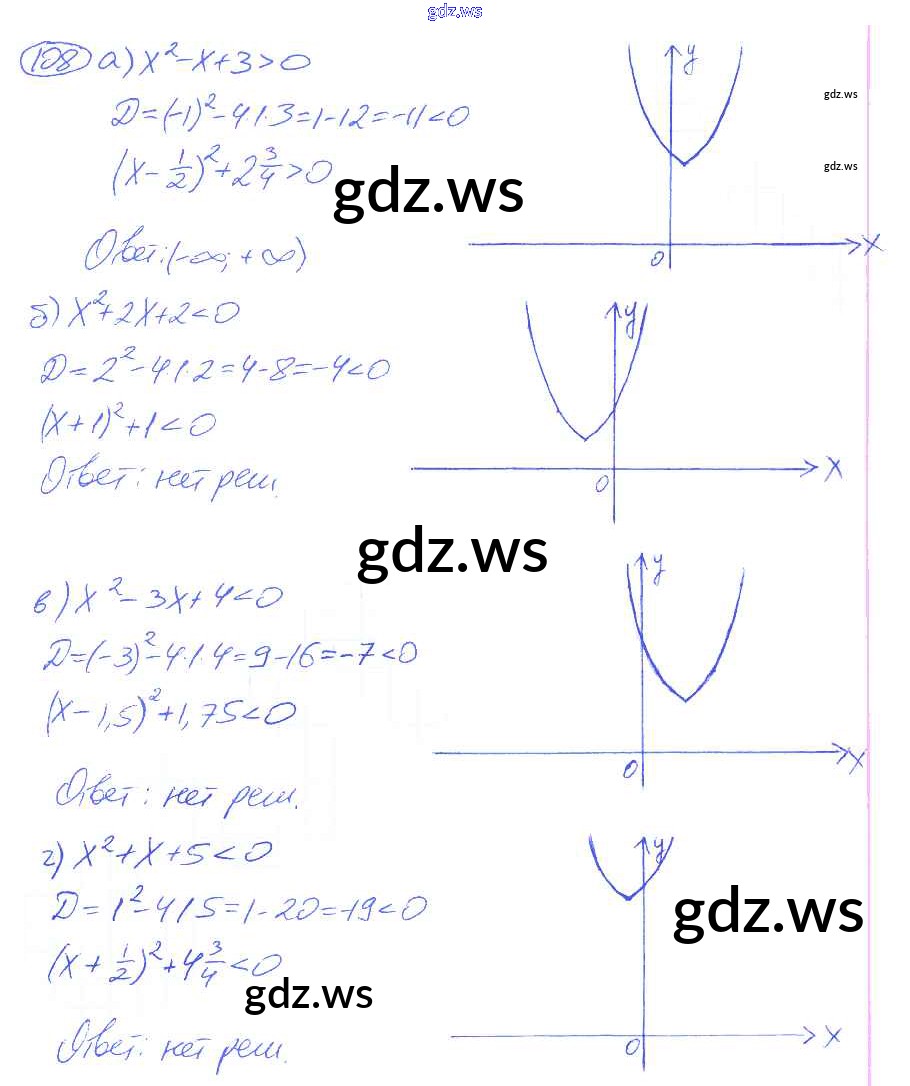 gdz.ws
108 а) x² - x + 3 > 0
y
gdz.ws
D = (-1)² - 4·1·3 = 1 - 12 = -11 < 0
(x - 1/2)² + 2 3/4 > 0
gdz.ws
gdz.ws
Ответ: (-∞; +∞)
0
x
б) x² + 2x + 2 < 0
y
D = 2² - 4·1·2 = 4 - 8 = -4 < 0
(x + 1)² + 1 < 0
Ответ: нет реш.
0
x
gdz.ws
в) x² - 3x + 4 < 0
y
D = (-3)² - 4·1·4 = 9 - 16 = -7 < 0
(x - 1,5)² + 1,75 < 0
0
x
Ответ: нет реш.
г) x² + x + 5 < 0
y
D = 1² - 4·1·5 = 1 - 20 = -19 < 0
gdz.ws
(x + 1/2)² + 4 3/4 < 0
gdz.ws
Ответ: нет реш.
0
x